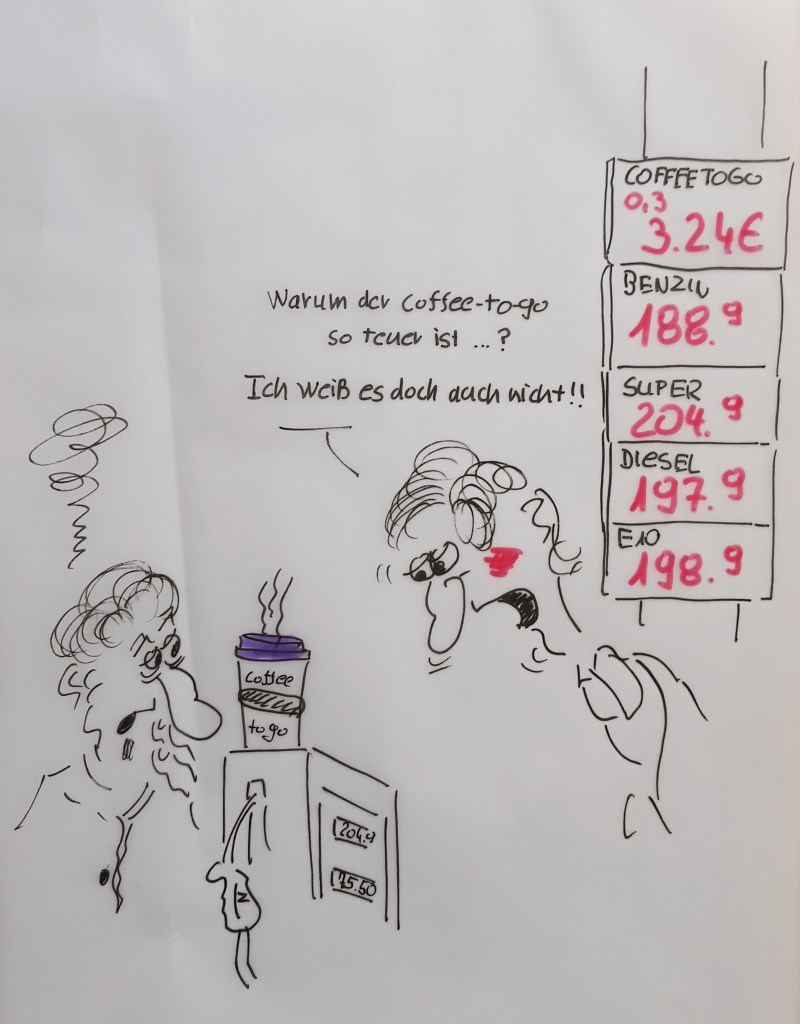 COFFEE TO GO
0,3
3.24€
BENZIN
188.9
SUPER
204.9
DIESEL
197.9
E10
198.9
Warum der Coffee-to-go
so teuer ist ...?
Ich weiß es doch auch nicht!!
Coffee
to go
204.9
75.50